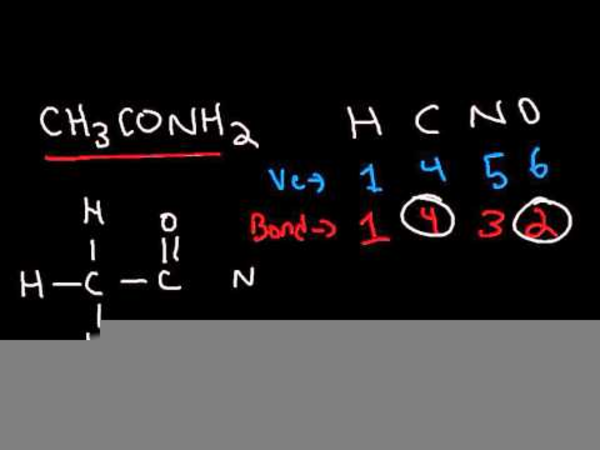 CH3CONH2
H C N O
Ve→ 1 4 5 6
Bond→ 1 4 3 2
H O
H—C—C N